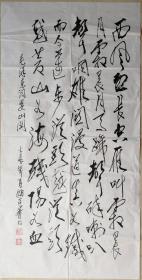 西风烈长空雁叫霜晨
月霜晨月马蹄声碎喇叭
声咽雄关漫道真如铁
而今迈步从头越从头
越苍山如海残阳如血
毛泽东词娄山关